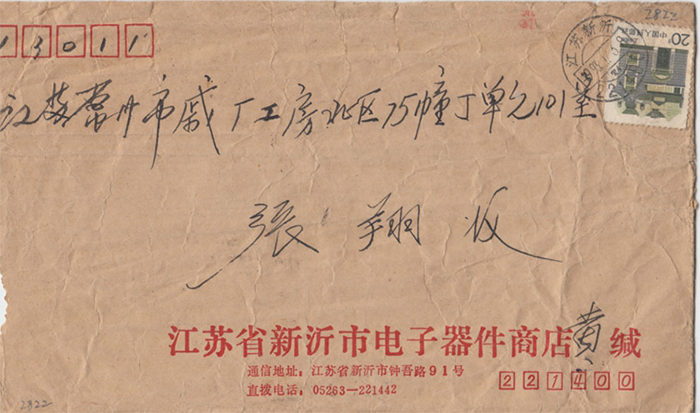 2822
13011
江苏新沂
20分
中国人民邮政
江苏常州市戚厂工房北区75幢丁单元101室
張翔收
江苏省新沂市电子器件商店黄缄
通信地址：江苏省新沂市钟吾路91号
直拨电话：05263－221442
221400
2822